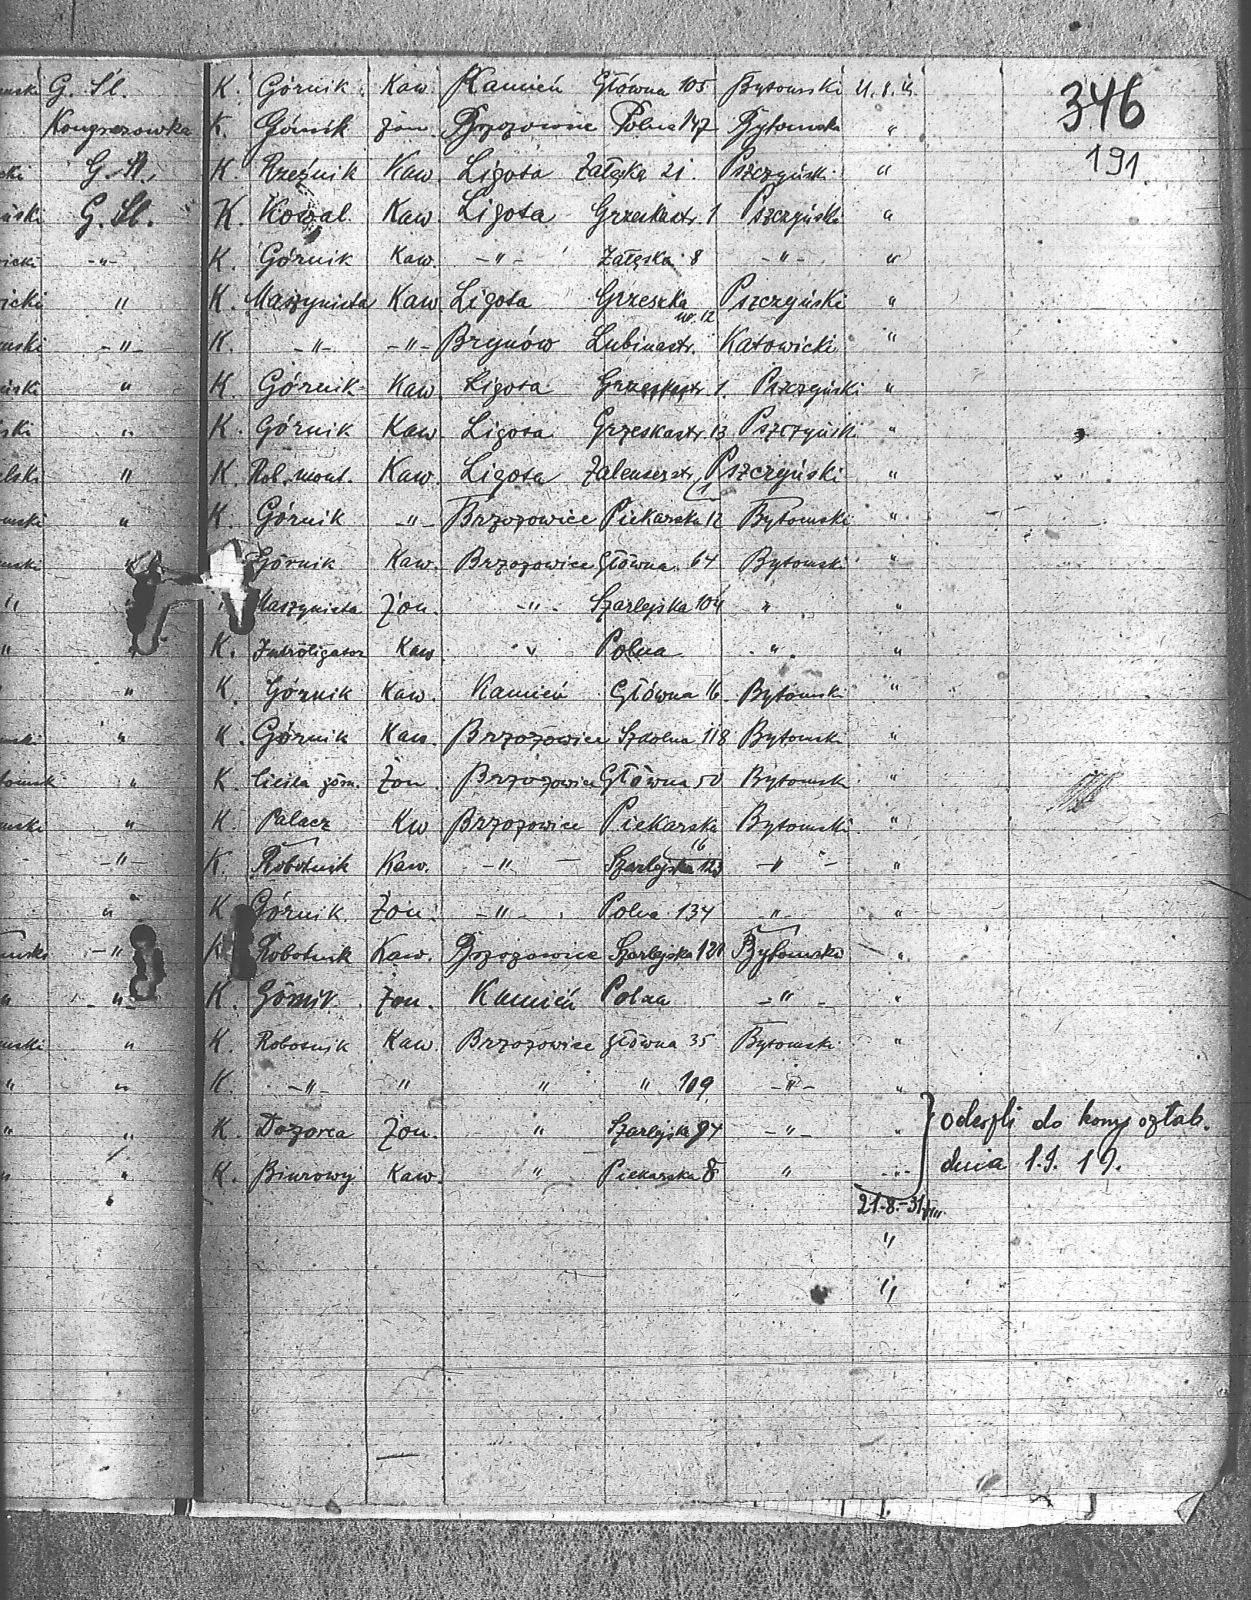 346
191
G. Śl. K. Górnik Kaw. Kamień Główna 105 Bytomski
Kongresowka K. Górnik żon. Brzozowice Polna 147 Bytomska "
G. Śl. K. Rzeźnik Kaw. Ligota Załęska 21. Pszczyński "
G. Śl. K. Kowal Kaw. Ligota Grzeskastr. 1 Pszczyński "
-"- K. Górnik Kaw. -"- Załęska 8 -"- "
" K. Maszynista Kaw Ligota Grzeszka nr. 12 Pszczyński "
-"- K. -"- -"- Brynów Lubinastr. Katowicki "
" K Górnik Kaw. Ligota 1. Pszczyński "
" K. Górnik Kaw. Ligota Grzeskastr. 13 Pszczyński "
" K. Rob. mont. Kaw. Ligota Zalenzerstr. 1 Pszczyński "
" K. Górnik -"- Brzozowice Piekarska 12 Bytomski "
" Górnik Kaw. Brzozowice Główna 64 Bytomski "
" Maszynista Żon. -"- Szarlejska 104 " "
" K. Introligator Kaw " Polna " "
" K. Górnik Kaw. Kamień Główna 16. Bytomski "
" K. Górnik Kaw. Brzozowice Szkolna 118 Bytomski "
" K. Cieśla górn. Żon. Brzozowice Główna 50 Bytomski "
" K. Palacz Kw Brzozowice Piekarska 16 Bytomski "
-"- K. Robotnik Kaw. -"- Szarlejska 123 -"- "
" K Górnik Żon. -"- Polna 134 -"- "
-"- K Robotnik Kaw. Brzozowice Szarlejska 121 Bytomski "
" K. Górnik Żon. Kamień Polna -"- "
" K. Robotnik Kaw Brzozowice Główna 35 Bytomski "
" K. -"- " " " 109 -"- "
" K. Dozorca Żon. " Szarlejska 94 -"- " odeszli do komp sztab.
" K. Biurowy Kaw. " Piekarska 8 " " dnia 1.9. 19.
21.8.-31.VIII.
"
"